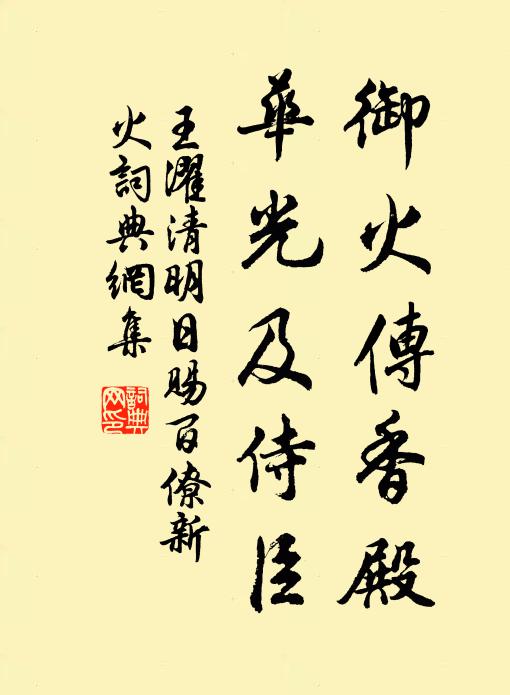 御火傳香殿
華光及侍臣
王濯清明日賜百僚新
火詞典網集
詞典網印